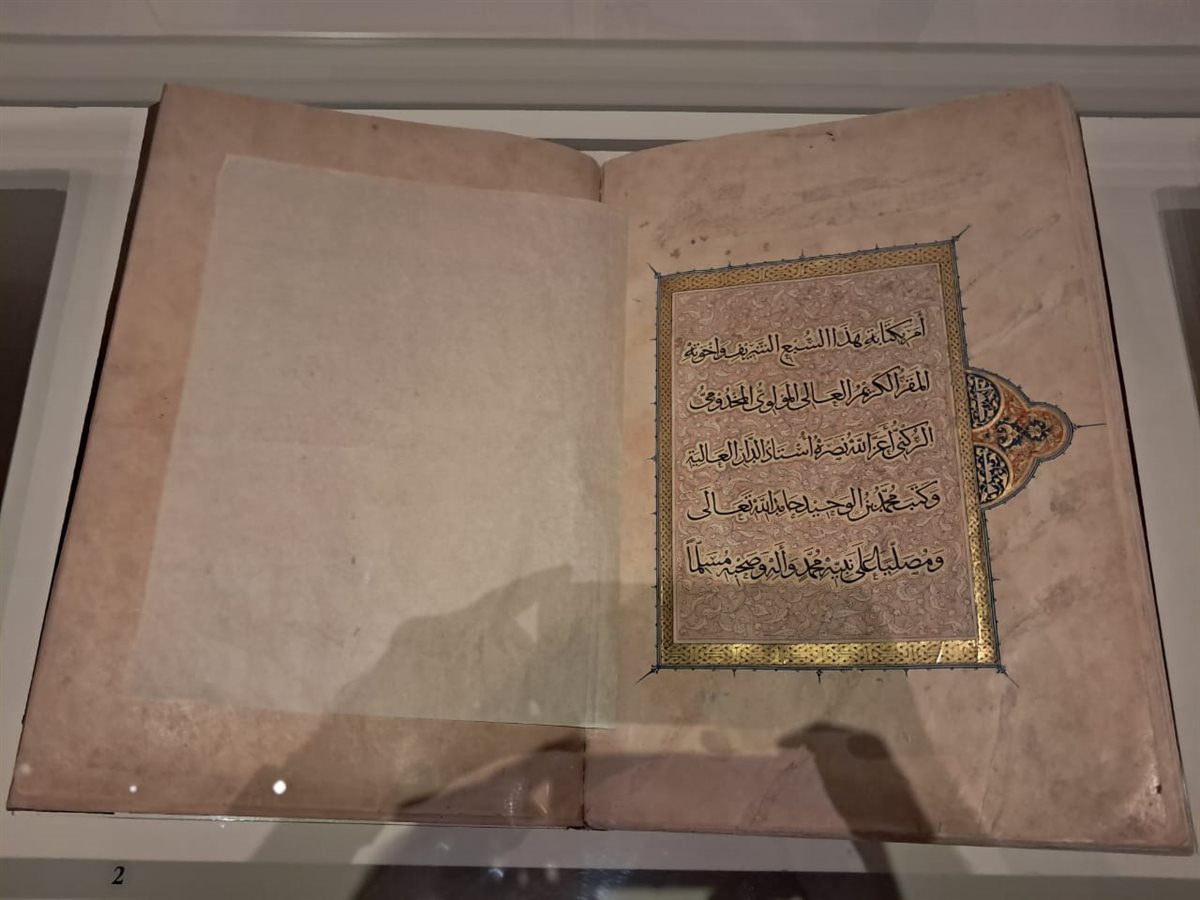 أمر بكتابة هذا السبع الشريف واخوته
المقر الكريم العالى المولوى المخدومى
الركنى أعز الله نصره أستاذ الدار العالية
وكتب محمد بن الوحيد حامدا لله تعالى
ومصليا على نبيه محمد وآله وصحبه مسلما
2